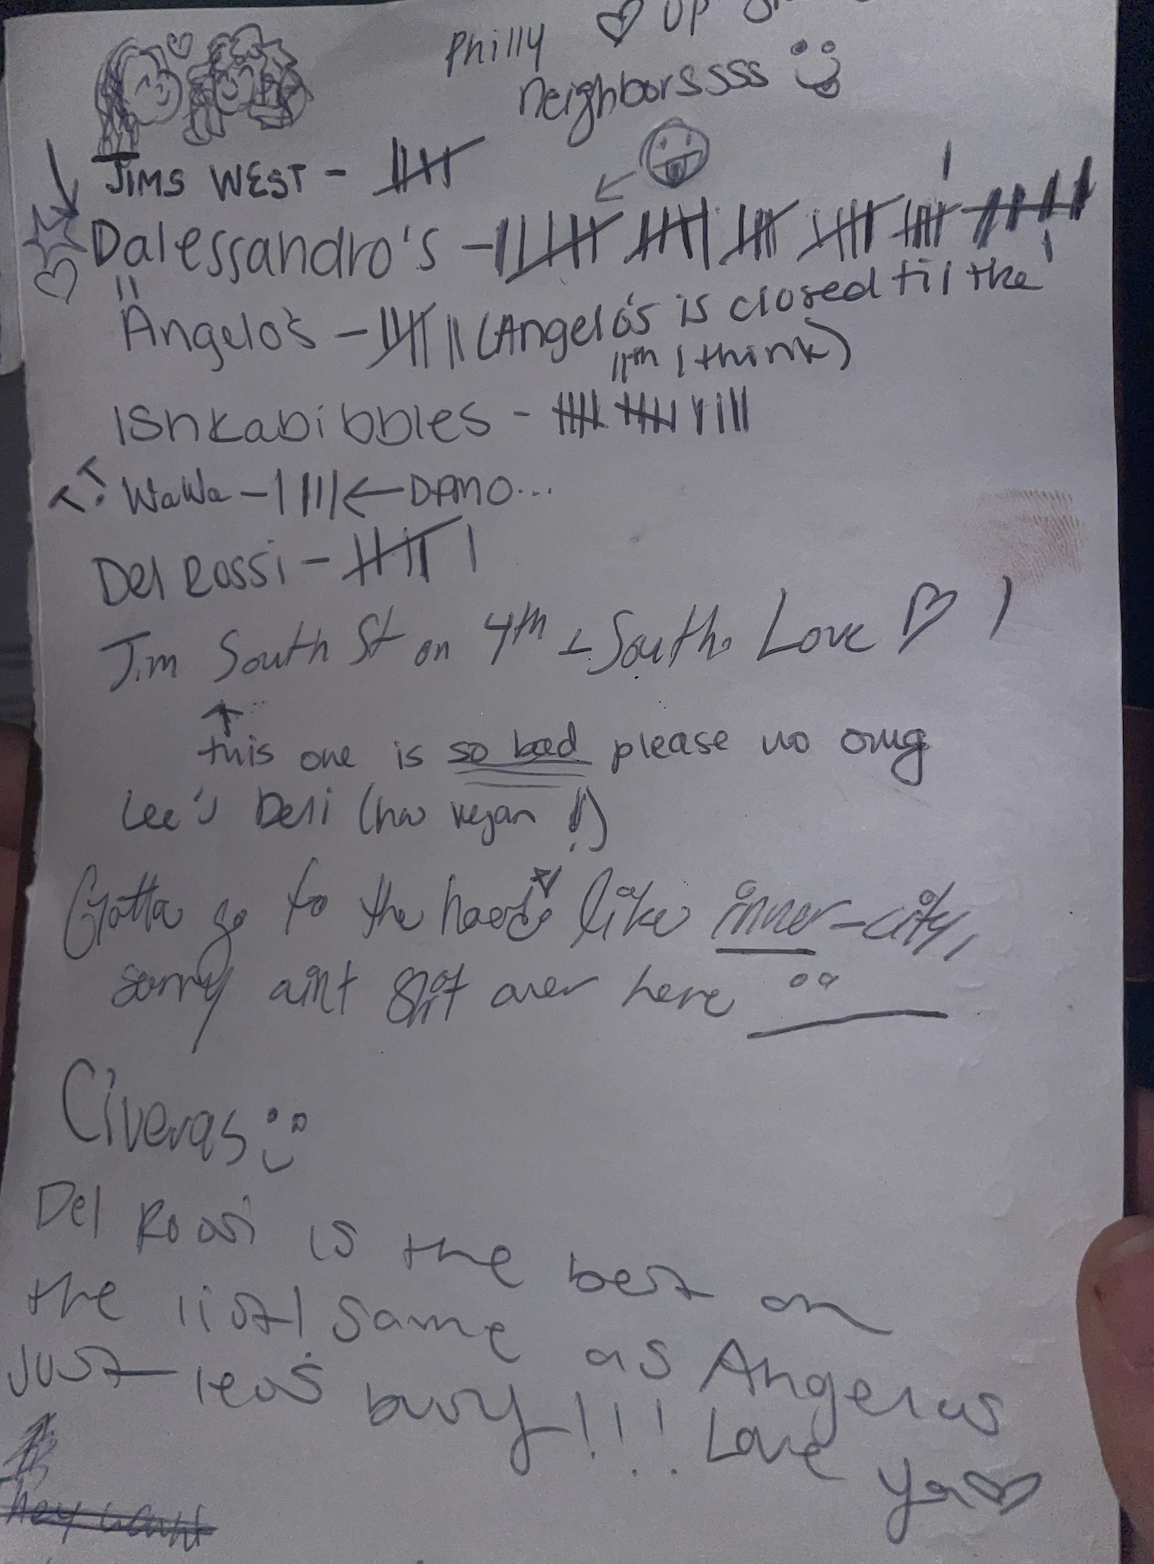 Philly ♡ UP
neighborssss
JIMS WEST -
Dalessandro's -
Angelo's - (Angelo's is closed til the
11th I think)
Ishkabibbles -
WaWa - ← DAMO...
Del Rossi -
Jim South St on 4th + South. Love ♡ !
↑ this one is so bad please no omg
Lee's Deli (hw vegan !)
Gotta go to the hood like inner-city,
sorry aint shit over here
Civeras
Del Rossi is the best on
the list! Same as Angelos
Just less busy!!! Love
ya♡